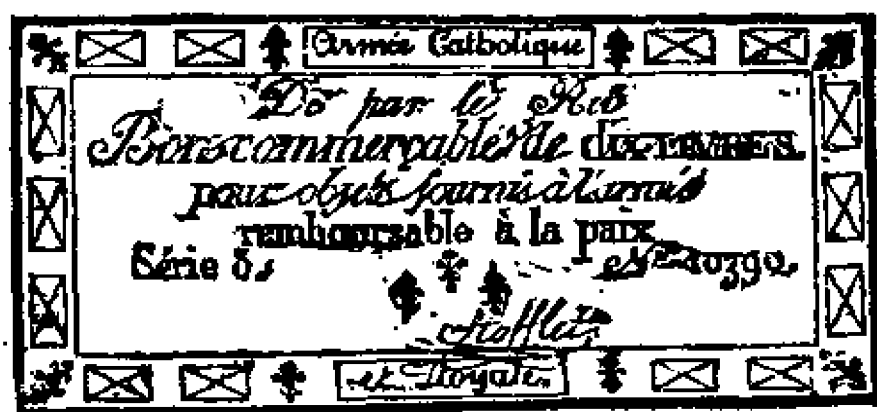 Armée Catholique
De par le Roi
Bons commerçable de DIX LIVRES
pour objets fournis à l'armée
remboursable à la paix
Série 5. Nº 10390.
Stofflet
et Royale.